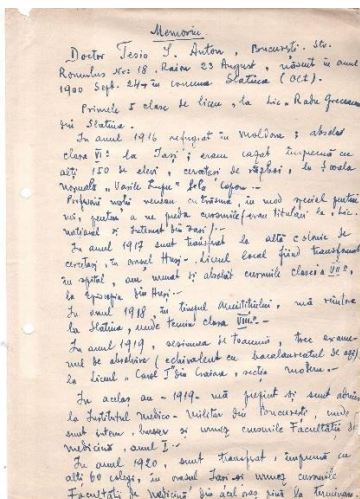 Memoriu
Doctor Tesio I. Anton, București. Str.
Romulus Nr: 18, Raion 23 August, născut în anul
1900 Sept. 24 în comuna Slatina (Olt).
Primele 5 clase de liceu, la Lic. Radu Greceanu
din Slatina.
In anul 1916 refugiat în Moldova; absolv
clasa VI: la Iași; eram cazat împreună cu
alți 150 de elevi, cercetași de război, la școala
normală „Vasile Lupu"
Profesorii noștri veneau cu trăsura, în mod special pentru
noi, pentru a ne preda cursurile erau titulari la Lic.
național și Internat din Iași/.-
In anul 1917 sunt transferat la altă colonie de
cercetași, în orașul Huși. Liceul local fiind transformat
în spital, am urmat și absolvit cursurile clasei a VII.a
la Episcopia din Huși.-
In anul 1918 în timpul armistițiului, mă reîntorc
la Slatina, unde termin clasa VIII.a
In anul 1919, sesiunea de toamnă, trec exame-
nul de absolvire (echivalent cu bacalaureatul de azi)
la Liceul „Carol I" din Craiova, secția modernă.-
In acelaș an -1919- mă prezint și sunt admis
la Institutul medico-militar din București, unde
sunt intern, bursier și urmez cursurile Facultății de
medicină, anul I.-
In anul 1920, sunt transferat, împreună cu
alți 60 colegi, în orașul Iași și urmez cursurile
Facultății de Medicină din acel oraș până la terminarea